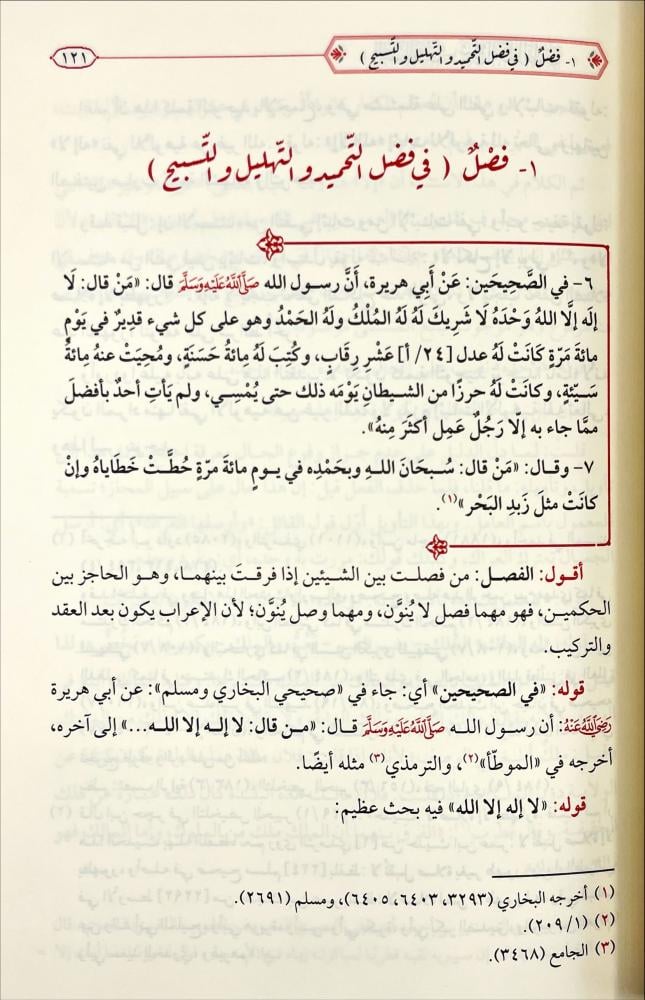 ١- فصل ( في فضل التحميد والتهليل والتسبيح )
١٢١
١- فصْلٌ ( في فضل التحميد والتهليل والتسبيح )
٦- في الصَّحِيحَين: عَنْ أَبِي هريرة، أَنَّ رسول الله صَلَّى اللَّهُ عَلَيْهِ وَسَلَّمَ قال: «مَنْ قال: لَا
إلَه إلَّا اللهُ وَحْدَهُ لَا شَرِيكَ لَهُ لَهُ المُلْكُ ولَهُ الحَمْدُ وهو على كل شيء قديرٌ في يَوْمٍ
مائةَ مَرّةٍ كَانَتْ لَهُ عدل [٢٤/ أ] عَشْرِ رِقَابٍ، وكُتِبَ لَهُ مائةُ حَسَنَةٍ، ومُحِيَتْ عنهُ مائةُ
سَيّئةٍ، وكانَتْ لَهُ حرزًا من الشيطانِ يَوْمَه ذلك حتى يُمْسِي، ولم يَأتِ أحدٌ بأفضلَ
ممَّا جاء به إلَّا رَجُلٌ عَمِل أكثَرَ مِنهُ».
٧- وقال: «مَنْ قال: سُبحَانَ اللـهِ وبحَمْدِه في يـومٍ مائةَ مرّةٍ حُطَّـتْ خَطَاياهُ وإنْ
كانَتْ مثلَ زَبدِ البَحْر»(١).
أقول: الفصل: من فصلت بين الشيئين إذا فرقتَ بينهمـا، وهـو الحاجز بين
الحكمين، فهو مهما فصل لا يُنوَّن، ومهما وصل يُنوَّن؛ لأن الإعراب يكون بعد العقد
والتركيب.
قوله: «في الصحيحين» أي: جاء في «صحيحي البخاري ومسلم»: عن أبي هريرة
رَضِيَ اللَّهُ عَنْهُ: أن رسول اللـه صَلَّى اللَّهُ عَلَيْهِ وَسَلَّمَ قـال: «مـن قال: لا إلـه إلا اللـه...» إلى آخره،
أخرجه في «الموطّأ»(٢)، والترمذي(٣) مثله أيضًا.
قوله: «لا إله إلا الله» فيه بحث عظيم:
(١) أخرجه البخاري (٣٢٩٣، ٦٤٠٣، ٦٤٠٥)، ومسلم (٢٦٩١).
(٢) (١/ ٢٠٩).
(٣) الجامع (٣٤٦٨).